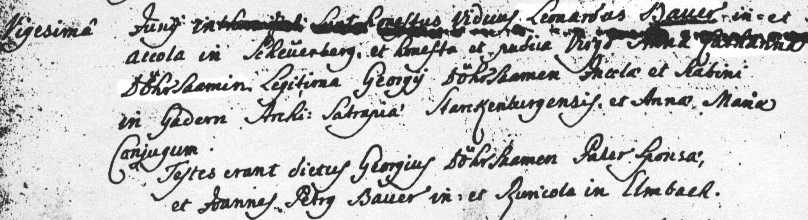 Vigesimâ Junÿ honestus Viduus Leonardus Bauer in= et
accola in Scheüerberg, et honesta et pudica Virgo Anna
Döhrsaamin, Legitima Georgÿ Döhrsaamen Incolæ et
in Gadern Archi: Satrapiâ Starckenburgensis, et Annæ Mariæ
Conjugum.
Testes erant dictus Georgius Döhrsaamen Pater Sponsæ,
et Joannes Petrg Bauer in= et Ruricola in Elmbach.